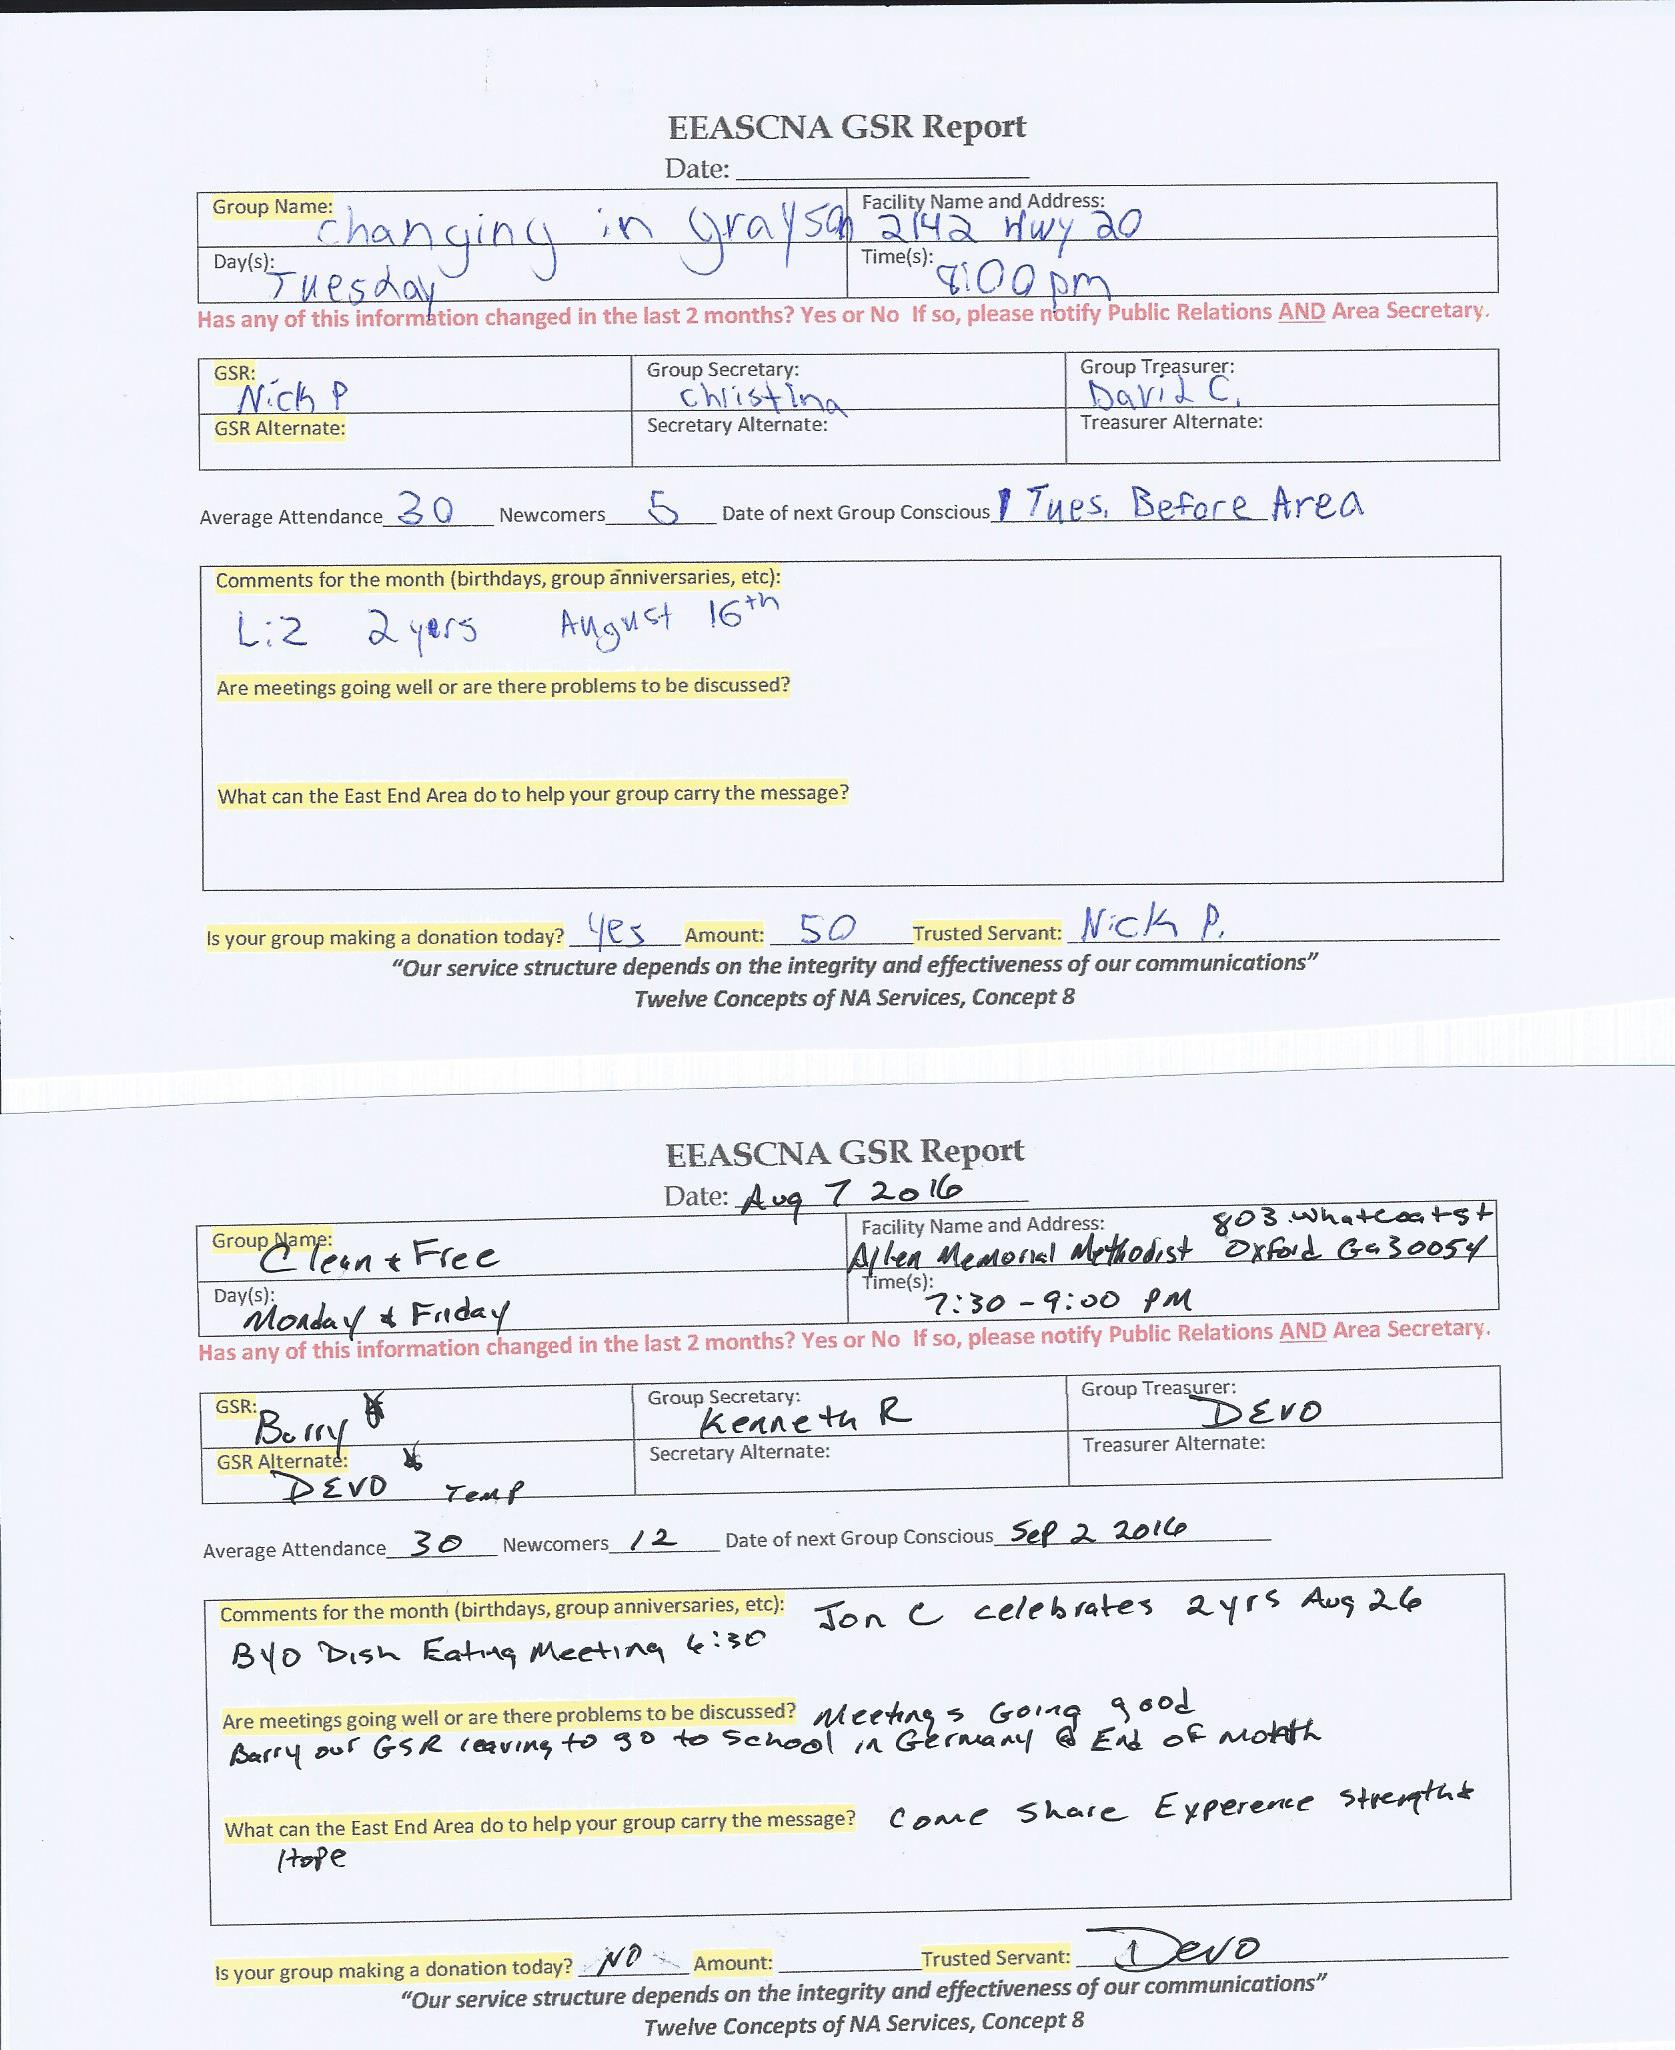 EEASCNA GSR Report
Date:
Group Name: Changing in Grayson
Facility Name and Address: 2142 Hwy 20
Day(s): Tuesday
Time(s): 8:00 pm
Has any of this information changed in the last 2 months? Yes or No If so, please notify Public Relations AND Area Secretary.
GSR: Nick P
Group Secretary: Christina
Group Treasurer: David C.
GSR Alternate:
Secretary Alternate:
Treasurer Alternate:
Average Attendance 30 Newcomers 5 Date of next Group Conscious Tues. Before Area
Comments for the month (birthdays, group anniversaries, etc):
Liz 2 yers August 16th
Are meetings going well or are there problems to be discussed?
What can the East End Area do to help your group carry the message?
Is your group making a donation today? Yes Amount: 50 Trusted Servant: Nick P.
"Our service structure depends on the integrity and effectiveness of our communications"
Twelve Concepts of NA Services, Concept 8
EEASCNA GSR Report
Date: Aug 7 2016
Group Name: Clean + Free
Facility Name and Address: 803 Whatcoat st
Allen Memorial Methodist Oxford Ga 30054
Day(s): Monday + Friday
Time(s): 7:30 - 9:00 PM
Has any of this information changed in the last 2 months? Yes or No If so, please notify Public Relations AND Area Secretary.
GSR: Barry
Group Secretary: Kenneth R
Group Treasurer: DEVO
GSR Alternate: DEVO Temp
Secretary Alternate:
Treasurer Alternate:
Average Attendance 30 Newcomers 12 Date of next Group Conscious Sep 2 2016
Comments for the month (birthdays, group anniversaries, etc): Jon C celebrates 2 yrs Aug 26
BYO Dish Eating Meeting 6:30
Are meetings going well or are there problems to be discussed? Meetings Going good
Barry our GSR leaving to go to School in Germany @ End of Month
What can the East End Area do to help your group carry the message? Come Share Experence Strength +
Hope
Is your group making a donation today? NO Amount: Trusted Servant: Devo
"Our service structure depends on the integrity and effectiveness of our communications"
Twelve Concepts of NA Services, Concept 8